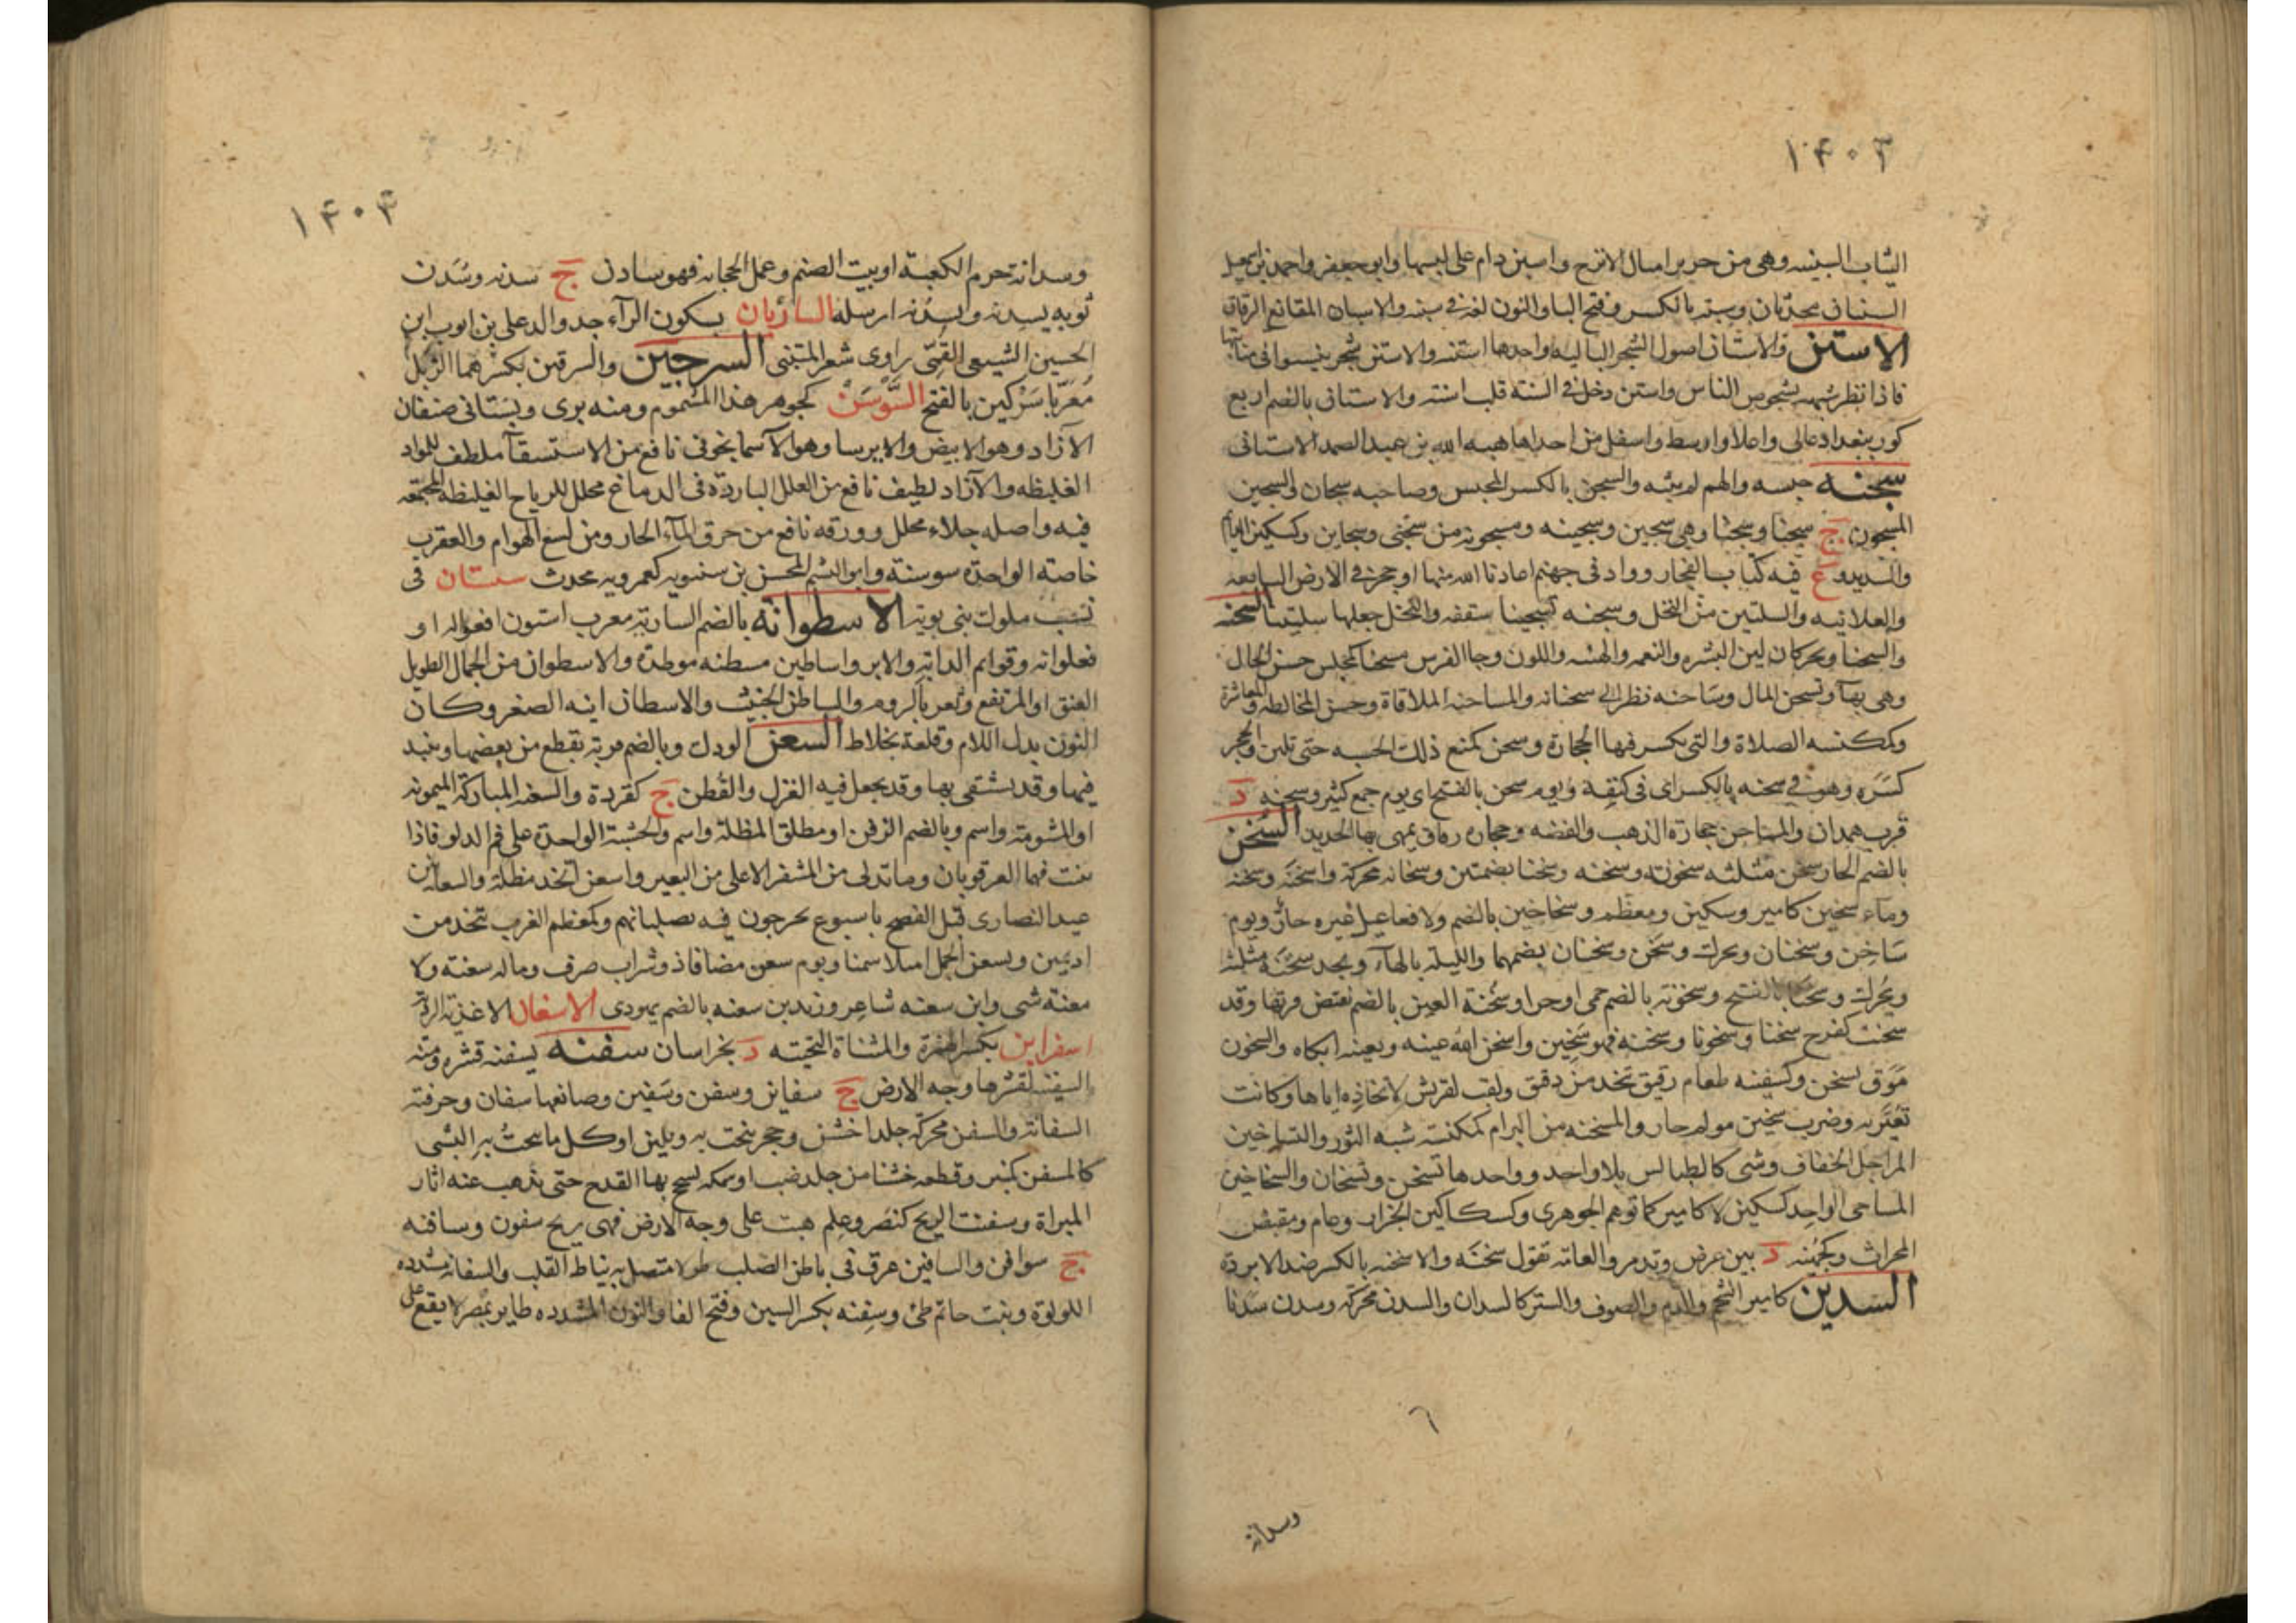 ١۴٠٣
الثياب السبنيه وهي من حرير امثال الاترج واسبن دام على لبسها وابو جعفر واحمد بن اسمعيل
السبنيان محدثان وسبنه بالكسر وفتح البا والنون لغة في سبته والاسبان المقانع الرقاق
الاستن والاستان اصول الشجر الباليه واحدها استنه والاستن شجر يفشو في منابتها
فاذا نظر شبهه بشخوص الناس واستن دخل في السنة قلب اسنت والاستان بالضم اربع
كور ببغداد عالى واعلا واوسط واسفل من احداها هبه الله بن عبد الصمد الاستانى
سجنه حبسه والهم لم يبثه والسجن بالكسر المحبس وصاحبه سجان والسجين
المسجون ج سجنا وسجنا وهي سجين وسجينه ومسجونه من سجنى وسجاين وكسكين الدائم
والشديد وع فيه كتاب الفجار وواد في جهنم اعاذنا الله منها او حجر في الارض السابعه
والعلانيه والسلتين من النخل وسجنه تسجينا شققه والنخل جعلها سلتينا السحنه
والسحنا ويحركان لين البشره والنعمه والهيئه واللون وجا الفرس مسحنا كمجلس حسن الحال
وهي بهآ وتسحن المال وساحنه نظر الى سحنائه والمساحنه الملاقاة وحسن المخالطه والمعاشرة
وكمكنسه الصلاة والتي يكسر فيها الحجارة وسحن كمنع ذلك الخشبه حتى تلين والحجر
كسره وهو في سحنه بالكسر اى في كنفه ويوم سحن بالفتح اى يوم جمع كثير وسحنه د
قرب همدان والمساحن حجارة الذهب والفضه وحجاره رقاق يمهى بها الحديد السخن
بالضم الحار سخن مثلثه سخونة وسخنه وسخنا بضمتين وسخانه محركة واسخنه وسخنه
وماء سخين كامير وسكين ومعظم وسخاخين بالضم ولا فعاعيل غيره حار ويوم
ساخن وسخنان ويحرك وسخن وسخنان بضمهما والليلة بالهآء ويجد سخنة مثلثة
ويحرك وسخنا بالفتح وسخونة بالضم حمى او حرا وسخنة العين بالضم نقيض قرتها وقد
سخنت كفرح سخنا وسخونا وسخنه فهو سخين واسخن الله عينه وبعينه ابكاه والسخون
مرق يسخن وكسفينه طعام رقيق تتخذ من دقيق ولقب لقريش لاتخاذه اياها وكانت
تعير به وضرب سخين مولم حار والمسخنه من البرام كمكنسة شبه التور والتساخين
المراجل الخفاف وشى كالطيالس بلا واحد وواحدها تسخن وتسخان والسخاخين
المساحى الواحد كسكين لا كامير كما توهم الجوهرى وكسكاكين الجزار وعام ومقبض
المحراث وكجهينه د بين عرض وتدمر والعامة تقول سخنه والاسخنه بالكسر ضد الابردة
السدين كامير الشحم والدم والصوف والستر كالسدان والسدن محركة وسدن سدنا
وسدانة
١۴٠۴
وسدانة خدم الكعبة او بيت الصنم وعمل الحجابه فهو سادن ج سدنه وسدن
ثوبه يسدنه ويسدنه ارسله الساربان بسكون الرآء جد والد على بن ايوب ابن
الحسين الشيعى القمى راوى شعر المتنبى السرجين والسرقين بكسرهما الزبل
معربا سركين بالفتح السوسن كجوهر هذا المشموم ومنه برى وبستانى صنفان
الآزاد وهو الابيض والايرسا وهو الآسمانجوني نافع من الاستسقآ ملطف للمواد
الغليظه والآزاد لطيف نافع من العلل الباردة في الدماغ محلل للرياح الغليظه المجتمعه
فيه واصله جلاء محلل وورقه نافع من حرق المآء الحار ومن لسع الهوام والعقرب
خاصة الواحده سوسنة وابو الشيم المحسن بن سنسويه كعمرويه محدث سستان في
نسب ملوك بني بويه الاسطوانة بالضم السارية معرب استون افعواله او
فعلوانه وقوائم الدابه والاير واساطين مسطنه موطدة والاسطوان من الجمال الطويل
العنق او المرتفع وثغر بالروم والساطن الخبيث والاسطان انيه الصفر وكان
النون بدل اللام وقلعة بخلاط السعن الودك وبالضم قربة تقطع من بعضها وينبذ
فيها وقد يستقى بها وقد يجعل فيه الغزل والقطن ج كقردة والسعنه المباركة الميمونه
او المشومة واسم وبالضم الزفن او مطلق المظلة واسم والخشبة الواحدة على فم الدلو فاذا
ثنت فهما العرقوبان وما تدلى من المشفر الاعلى من البعير واسعن اتخذ مظلة والسعانين
عيد النصارى قبل الفصح باسبوع يخرجون فيه بصلبانهم وكمعظم الغرب تتخذ من
اديمين وتسعن الجمل امتلا سمنا ويوم سعن مضافا ذو شراب صرف وماله سعنة ولا
معنة شى وابن سعنه شاعر وزيد بن سعنه بالضم يهودى الاسغان الاغذية الردية
اسفراين بكسر الهمزة والمثناة التحتيه د بخراسان سفنه يسفنه قشره ومنه
السفينة لقشرها وجه الارض ج سفاين وسفن وسفين وصانعها سفان وحرفته
السفانة والسفن محركة جلد اخشن وحجر ينحت به ويلين او كل ما ينحت به الشى
كالمسفن كمنبر وقطعه خشنا من جلد ضب او سمكه يسحج بها القدح حتى يذهب عنه اثار
المبراة وسفنت الريح كنصر وعلم هبت على وجه الارض فهى ريح سفون وسافنه
ج سوافن والسافين عرق في باطن الصلب طولا متصل به نياط القلب والسفانه مشدده
اللولوة وبنت حاتم طى وسفنه بكسر السين وفتح الفا والنون المشدده طاير بمصر لا يقع على